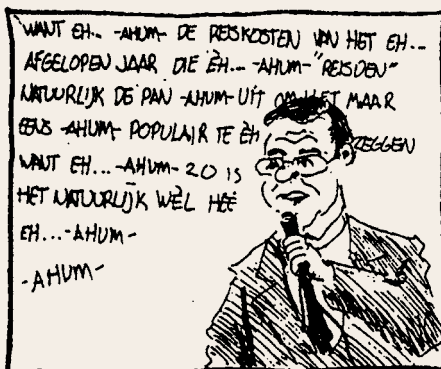 WANT EH... -AHUM- DE REISKOSTEN VAN HET EH...
AFGELOPEN JAAR DIE ÈH... -AHUM- "REISDEN"
NATUURLIJK DE PAN -AHUM- UIT OM HET MAAR
EENS -AHUM- POPULAIR TE ÈH ZEGGEN
WANT EH... -AHUM- ZO IS
HET NATUURLIJK WÈL HÈÈ
EH...-AHUM-
-AHUM-